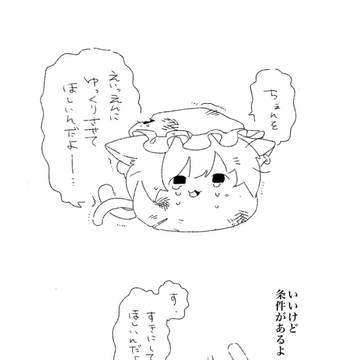 ちぇんを
えいえんに
ゆっくりさせて
ほしいんだよ―…
いいけど
条件があるよ
す、
すきにして
ほしいんだよ